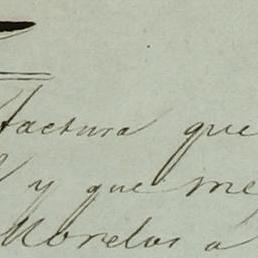 factura que
y que me
Morelos a